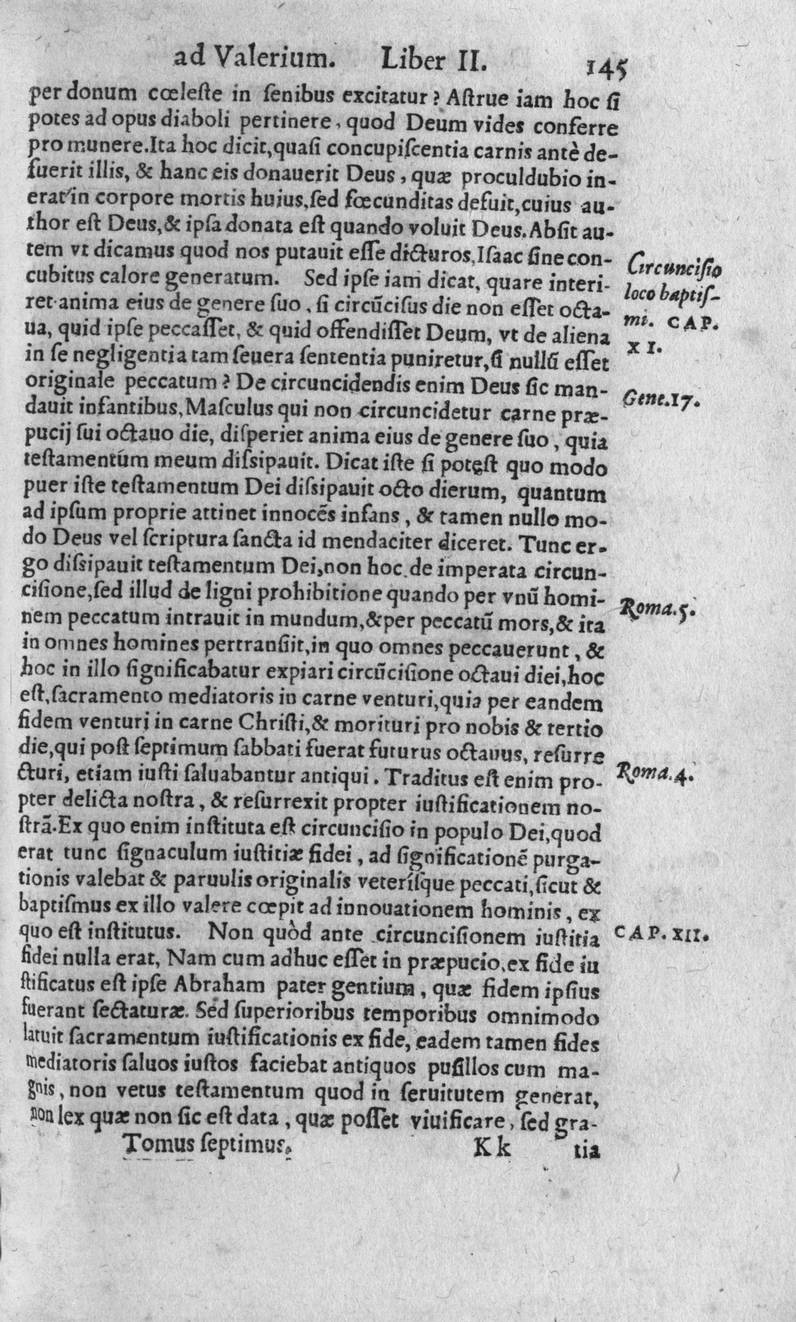 ad Valerium. Liber II. 145
per donum cœleſte in ſenibus excitatur? Aſtrue iam hoc ſi
potes ad opus diaboli pertinere, quod Deum vides conferre
pro munere. Ita hoc dicit, quaſi concupiſcentia carnis antè de-
fuerit illis, & hanc eis donauerit Deus, quæ proculdubio in-
erat in corpore mortis huius, ſed fœcunditas defuit, cuius au-
thor eſt Deus, & ipſa donata eſt quando voluit Deus. Abſit au-
tem vt dicamus quod nos putauit eſſe dicturos, Iſaac ſine con-
cubitus calore generatum. Sed ipſe iam dicat, quare interi-
ret anima eius de genere ſuo, ſi circũciſus die non eſſet octa-
ua, quid ipſe peccaſſet, & quid offendiſſet Deum, vt de aliena
in ſe negligentia tam ſeuera ſententia puniretur, ſi nullũ eſſet
originale peccatum? De circuncidendis enim Deus ſic man-
dauit infantibus, Maſculus qui non circuncidetur carne præ-
pucij ſui octauo die, diſperiet anima eius de genere ſuo, quia
teſtamentum meum diſsipauit. Dicat iſte ſi potęſt quo modo
puer iſte teſtamentum Dei diſsipauit octo dierum, quantum
ad ipſum proprie attinet innocẽs infans, & tamen nullo mo-
do Deus vel ſcriptura ſancta id mendaciter diceret. Tunc er-
go diſsipauit teſtamentum Dei, non hoc de imperata circun-
ciſione, ſed illud de ligni prohibitione quando per vnũ homi-
nem peccatum intrauit in mundum, & per peccatũ mors, & ita
in omnes homines pertranſiit, in quo omnes peccauerunt, &
hoc in illo ſignificabatur expiari circũciſione octaui diei, hoc
eſt, ſacramento mediatoris in carne venturi, quia per eandem
fidem venturi in carne Chriſti, & morituri pro nobis & tertio
die, qui poſt ſeptimum ſabbati fuerat futurus octauus, reſurre
cturi, etiam iuſti ſaluabantur antiqui. Traditus eſt enim pro-
pter delicta noſtra, & reſurrexit propter iuſtificationem no-
ſtrã. Ex quo enim inſtituta eſt circunciſio in populo Dei, quod
erat tunc ſignaculum iuſtitiæ fidei, ad ſignificationẽ purga-
tionis valebat & paruulis originalis veteriſque peccati, ſicut &
baptiſmus ex illo valere cœpit ad innouationem hominis, ex
quo eſt inſtitutus. Non quòd ante circunciſionem iuſtitia
fidei nulla erat, Nam cum adhuc eſſet in præpucio, ex fide iu
ſtificatus eſt ipſe Abraham pater gentium, quæ fidem ipſius
fuerant ſectaturæ. Sed ſuperioribus temporibus omnimodo
latuit ſacramentum iuſtificationis ex fide, eadem tamen fides
mediatoris ſaluos iuſtos faciebat antiquos puſillos cum ma-
gnis, non vetus teſtamentum quod in ſeruitutem generat,
non lex quæ non ſic eſt data, quæ poſſet viuificare, ſed gra-
Tomus ſeptimus. Kk tia
Circunciſio
loco baptiſ-
mi. CAP.
XI.
Gene.17.
Roma.5.
Roma.4.
CAP. XII.